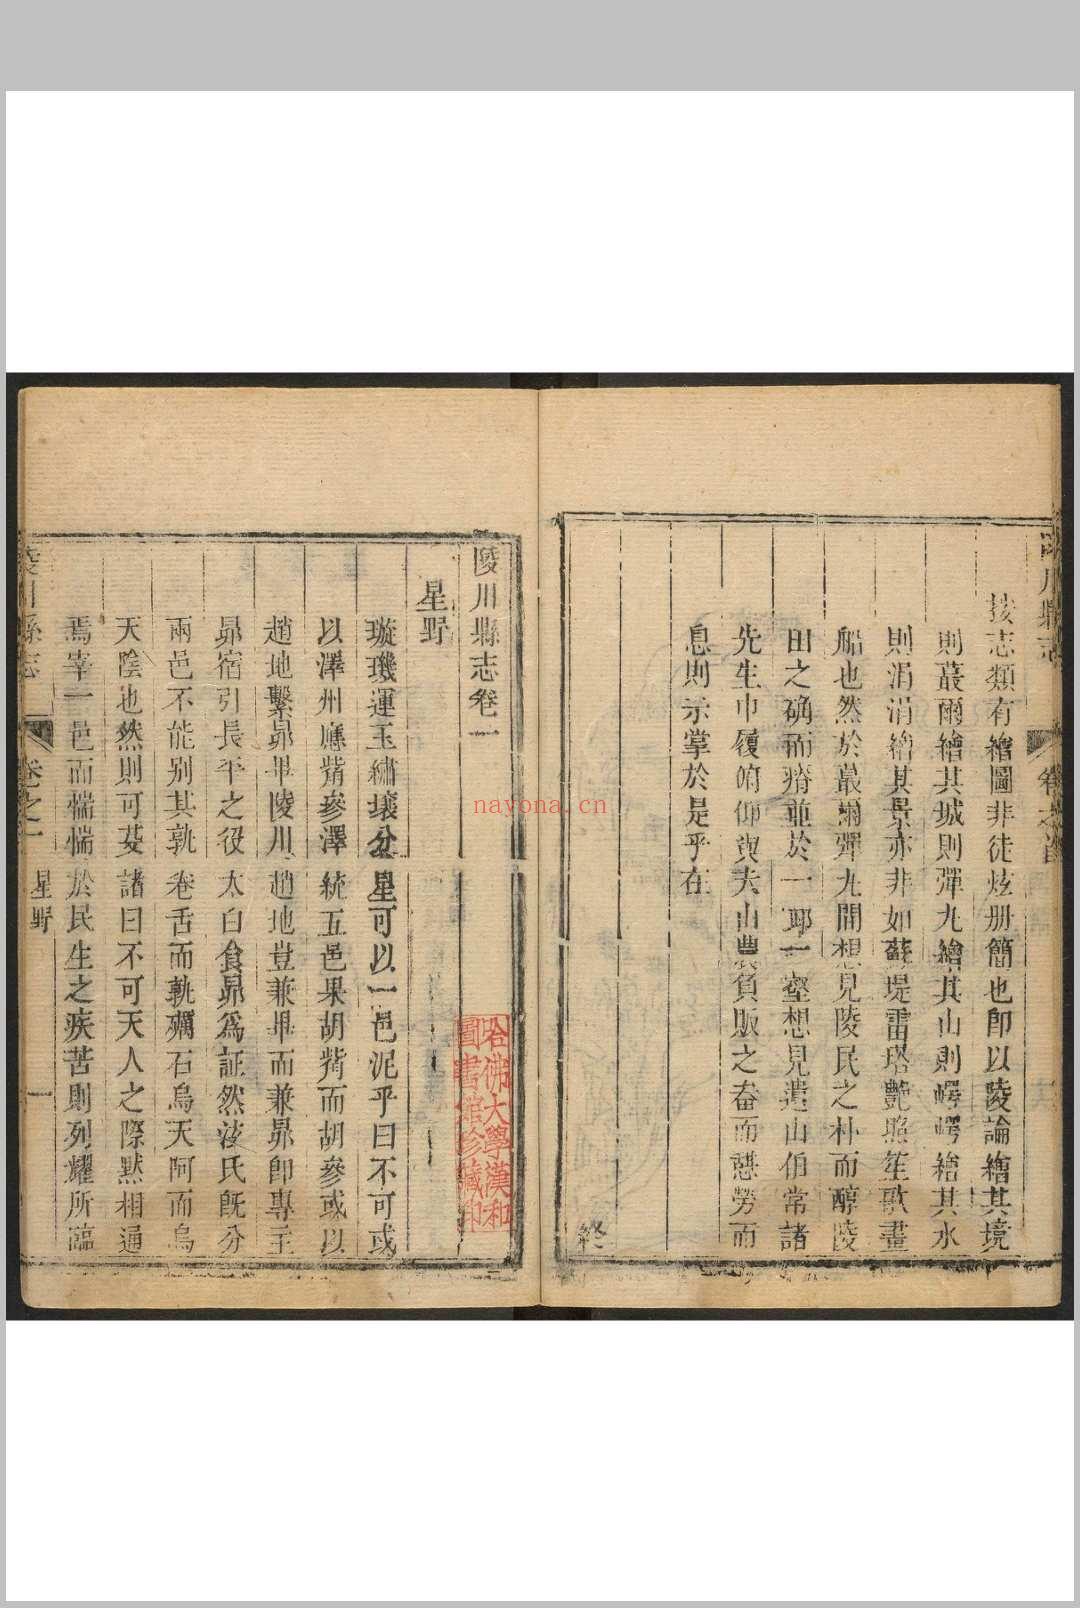 按志類有繪圖非徒炫册簡也卽以陵論繪其境
則蕞爾繪其城則彈丸繪其山則崿崿繪其水
則涓涓繪其景亦非如蘇堤雷塔艷照笙歌畫
船也然於蕞爾彈丸間想見陵民之朴而醇陵
田之确而瘠並於一邱一壑想見遺山伯常諸
先生巾履俯仰與夫山農負販之畚而憇勞而
息則示掌於是乎在
終
川縣志
卷之首
陵川縣志卷一
星野
璇璣運玉繡壤分星可以一邑泥乎曰不可或
以澤州應觜參澤統五邑果胡觜而胡參或以
趙地繫昴畢陵川趙地豈兼畢而兼昴卽專主
昴宿引長平之役太白食昴爲証然淩氏旣分
兩邑不能別其孰卷舌而孰礪石烏天阿而烏
天陰也然則可芟諸曰不可天人之際默相通
焉宰一邑而惴惴於民生之疾苦則列耀所臨
陵川縣志
卷之一
星野
一
哈佛大學漢和
圖書館珍藏印
nayona.cn